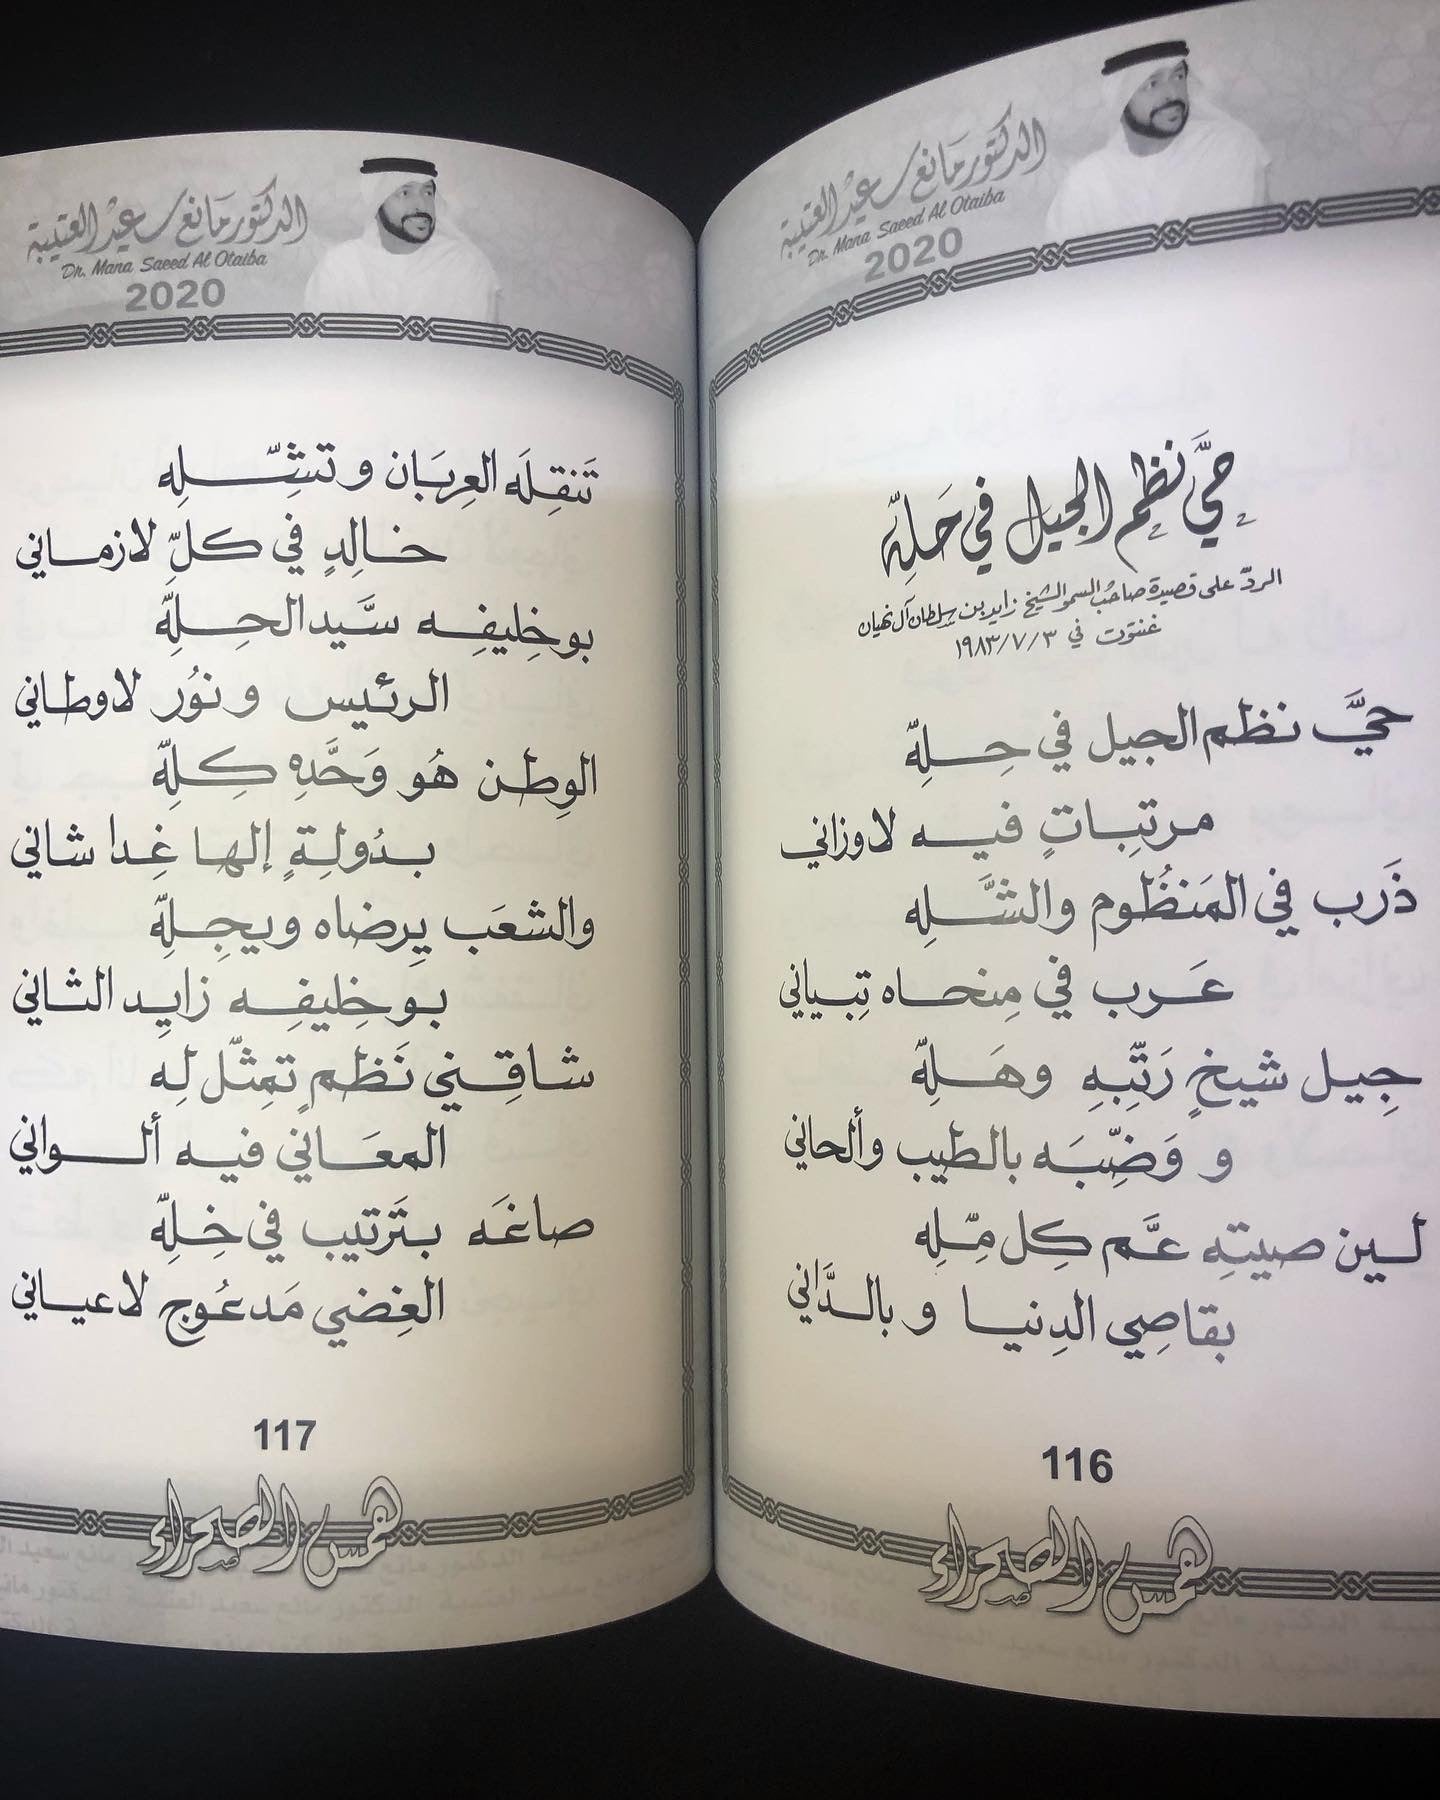 الدكتور مانع سعيد العتيبة
Dr. Mana Saeed Al Otaiba
2020
حَيَّ نظم الجيل في حَلِّه
الردّ على قصيدة صاحب السمو الشيخ زايد بن سلطان آل نهيان
غنتوت في ١٩٨٣/٧/٣
حَيَّ نظم الجيل في حِلِّه
مرتِبات فيه لاوزاني
ذَرب في المَنظُوم والشَّله
عَرب في مِنحاه تِبياني
جِيل شيخٍ رَتّبِهِ وهَلِّه
و وَضِّبَه بالطيب وألحاني
لين صيتِه عَّم كِل مِّلِه
بقاصِي الدِنيا و بالدَّاني
116
همس الصحراء
الدكتور مانع سعيد العتيبة
Dr. Mana Saeed Al Otaiba
2020
تَنقِلَه العِربَان وتشِّلِه
خالِدٍ في كلِّ لازماني
بوخِليفِه سَّيد الحِلِّه
الرئيس ونوُر لاوطاني
الوِطن هُو وَحَّدِه كِلِّه
بدُولِةٍ إلها غِدا شاني
والشعَب يِرضاه ويجِلِّه
بوخِليفِه زايِد الثاني
شاقِني نَظمٍ تمِثّل لِه
المعَاني فيه ألواني
صاغَه بتَرتيب في خِلِّه
الغِضي مَدعُوج لاعياني
117
همس الصحراء